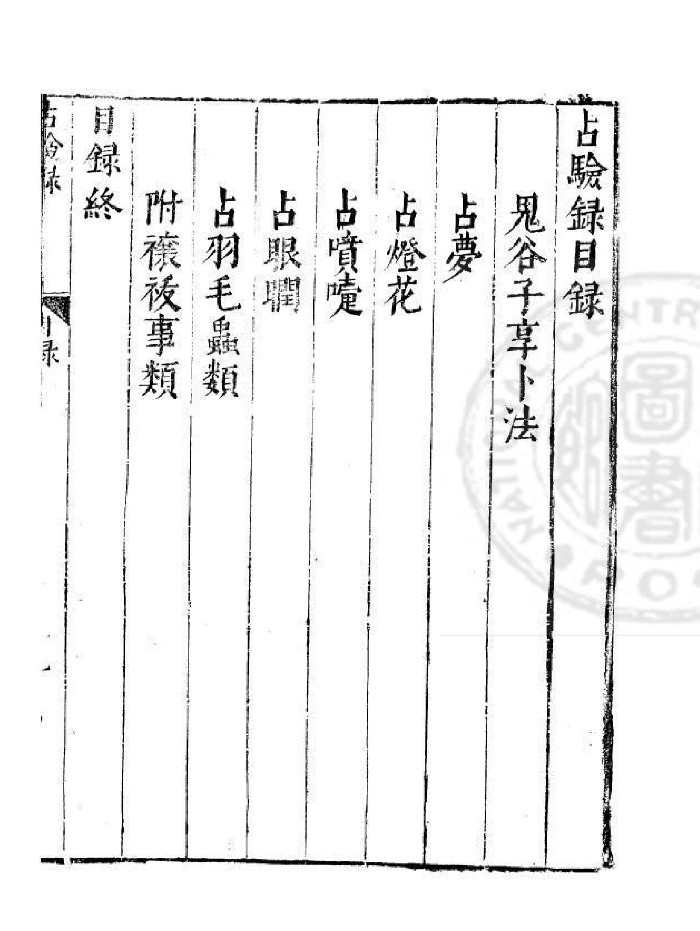 占驗録目録
鬼谷子享卜法
占夢
占燈花
占噴嚏
占眼瞤
占羽毛蟲類
附禳祓事類
目録終
占驗録
目録
圖書